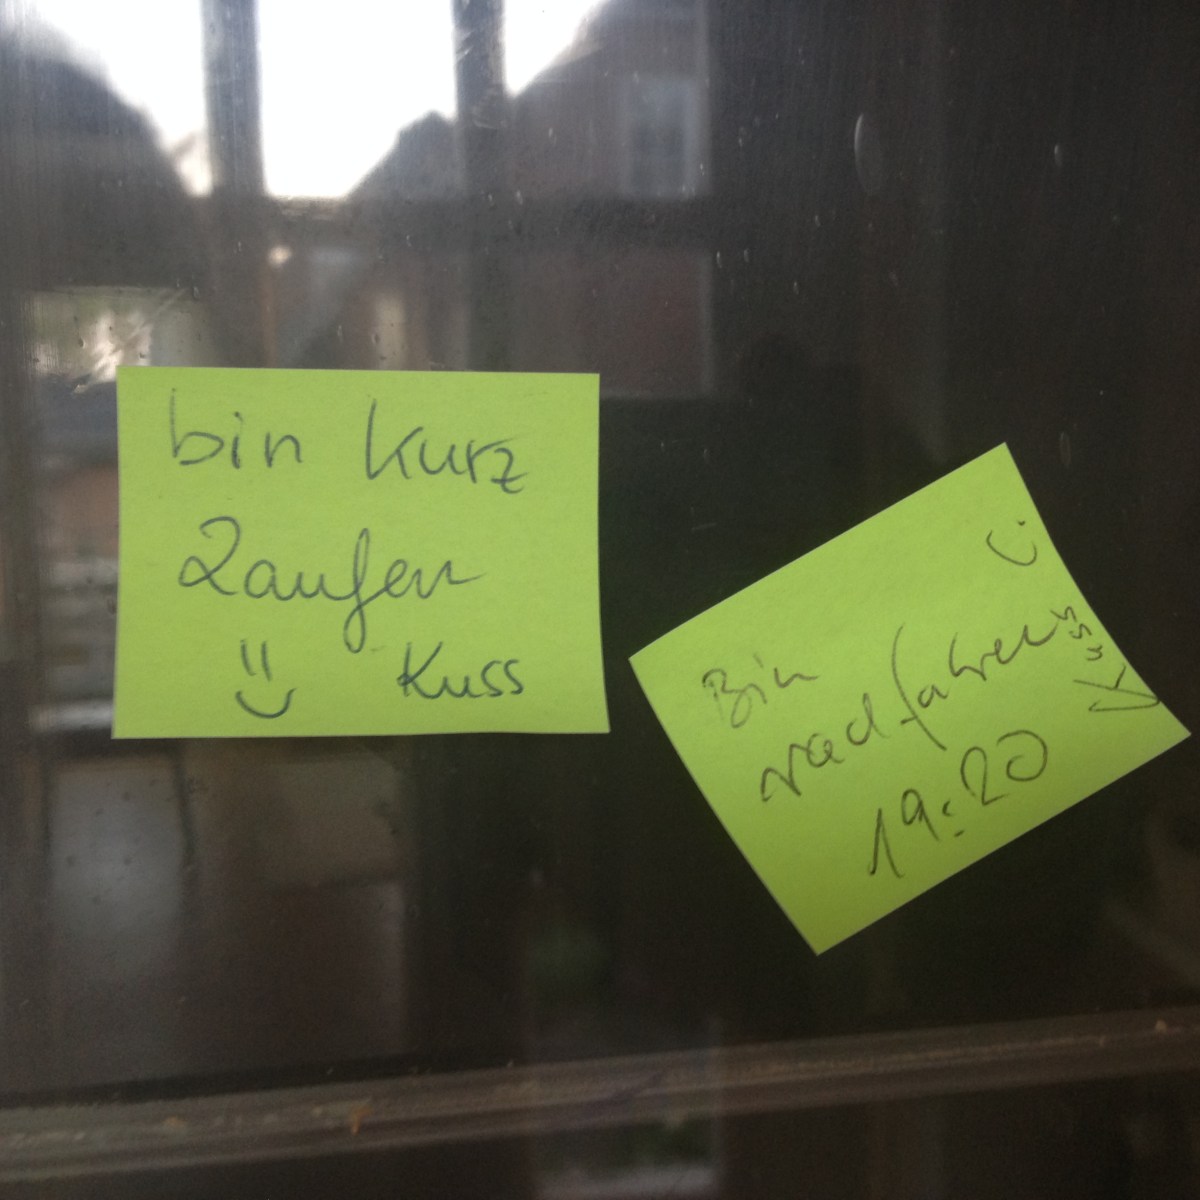 bin kurz
Laufen
Kuss
Bin
radfahren
19:20
Kuss